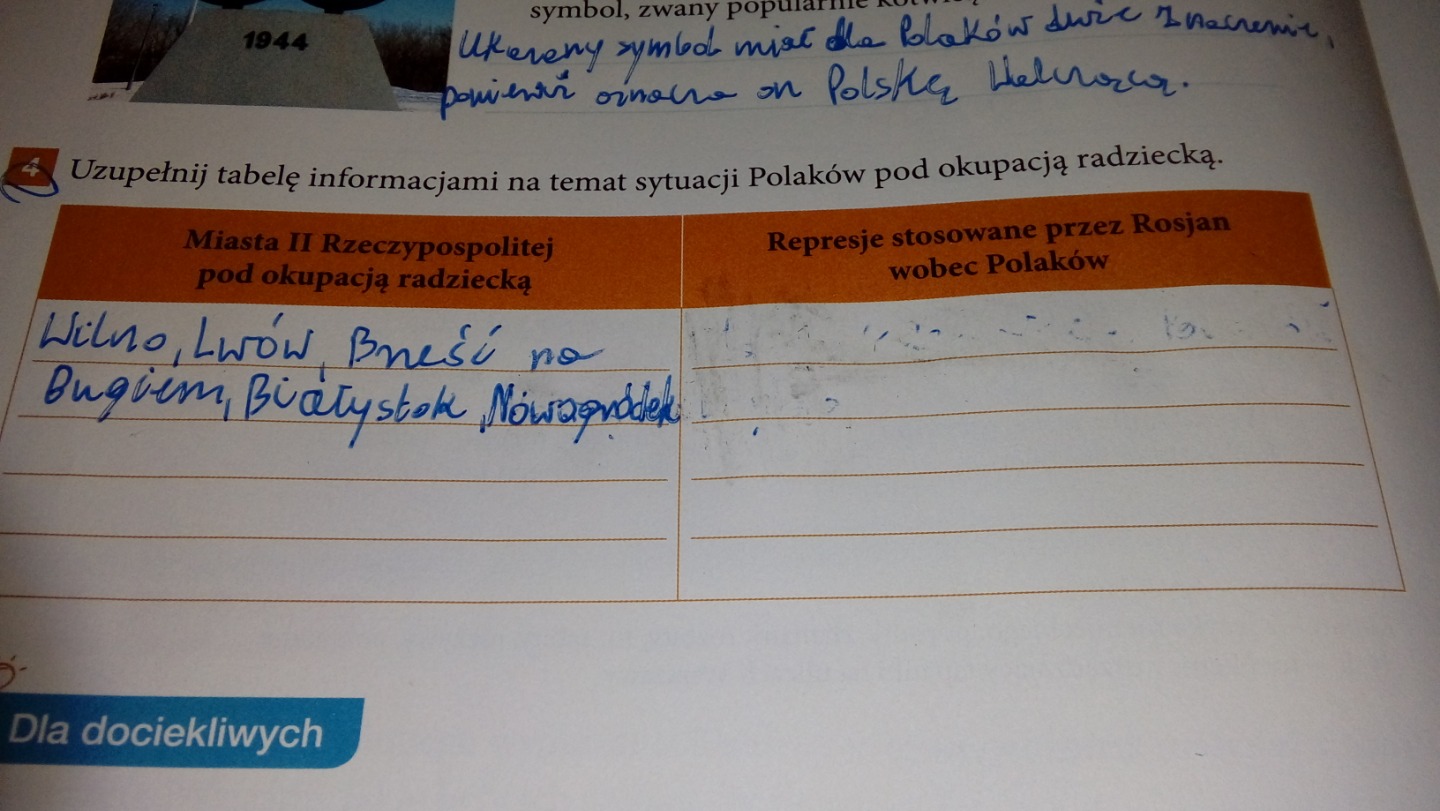 symbol, zwany popularnie
1944
Ukazany symbol miał dla Polaków duże znaczenie,
ponieważ oznacza on Polskę Walczącą.
4 Uzupełnij tabelę informacjami na temat sytuacji Polaków pod okupacją radziecką.
Miasta II Rzeczypospolitej
pod okupacją radziecką
Represje stosowane przez Rosjan
wobec Polaków
Wilno, Lwów, Brześć na
Bugiem, Białystok, Nowogródek
Dla dociekliwych